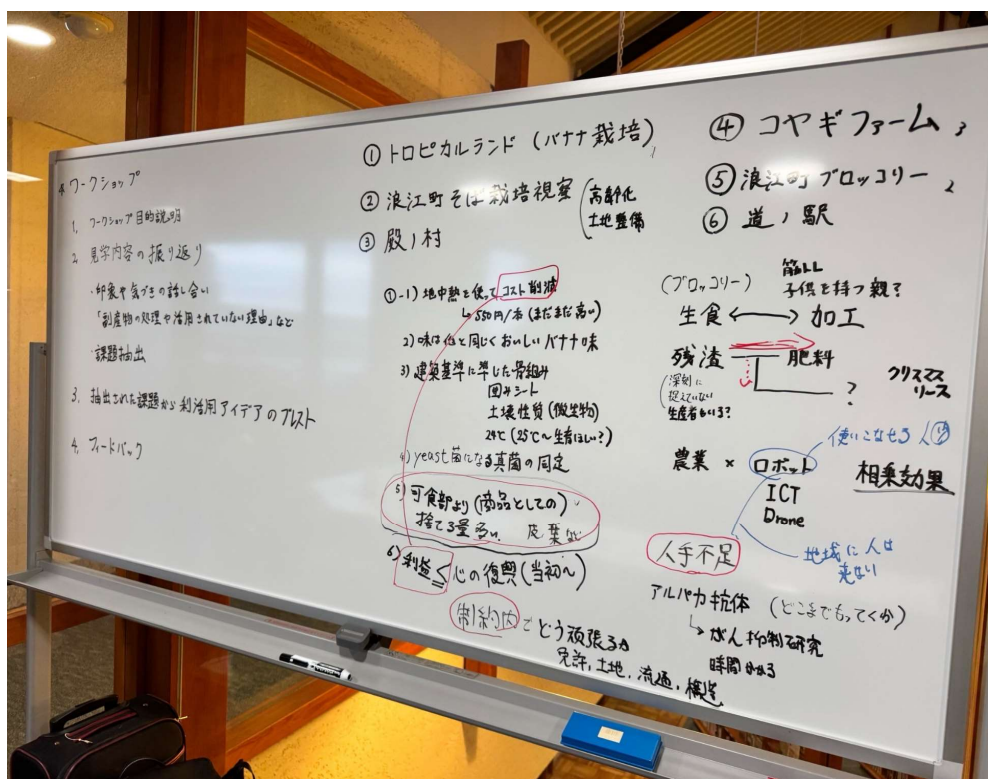 4 ワークショップ
1. ワークショップ目的説明
2 見学内容の振り返り
・印象や気づきの話し合い
「副産物の処理や活用されていない理由」など
・課題抽出
3. 抽出された課題から利活用アイデアのブレスト
4. フィードバック
① トロピカルランド (バナナ栽培)
② 浪江町そば栽培視察
高齢化
土地整備
③ 殿ノ村
④ コヤギファーム 3
⑤ 浪江町ブロッコリー 2
⑥ 道ノ駅
①-1) 地中熱を使ってコスト削減
↳ 550円/本 (まだまだ高い)
2) 味は他と同じくおいしいバナナ味
3) 建築基準に準じた骨組み
囲みシート
土壌性質 (微生物)
24℃ (25℃〜生育ほしい?)
4) yeast菌になる真菌の同定
5) 可食部より (商品としての)
捨てる量多い. 皮 葉など
6) 利益 < 心の復興 (当初〜)
制約内でどう頑張るか
免許, 土地, 流通, 構造
(ブロッコリー)
筋トレ
子供を持つ親?
生食 ⟷ 加工
残渣 肥料
?
クリスマス
リース
深刻に
捉えていない
生産者もいる?
農業 × ロボット
ICT
Drone
使いこなせる人
相乗効果
人手不足
地域に人は
来ない
アルパカ抗体 (どこまでもってくか)
↳ がん抑制研究
時間かかる